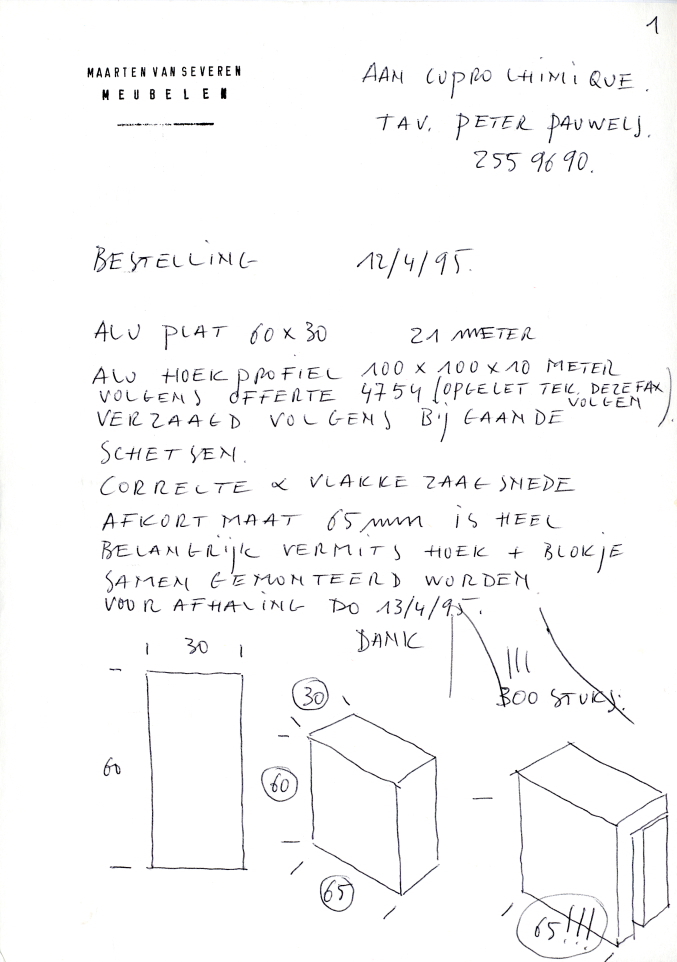 1
MAARTEN VAN SEVEREN
MEUBELEN
AAN CUPRO CHIMIQUE.
TAV. PETER PAUWELS.
255 96 90.
BESTELLING 12/4/95.
ALU PLAT 60 x 30 21 METER
ALU HOEKPROFIEL 100 x 100 x 10 METER
VOLGENS OFFERTE 4754 (OPGELET TEK. DEZE FAX
VOLGEN)
VERZAAGD VOLGENS BIJGAANDE
SCHETSEN.
CORRECTE & VLAKKE ZAAGSNEDE
AFKORTMAAT 65 mm IS HEEL
BELANGRIJK VERMITS HOEK + BLOKJE
SAMEN GEMONTEERD WORDEN
VOOR AFHALING DO 13/4/95.
DANK
!!!
300 STUKS.
30
60
30
60
65
65!!!